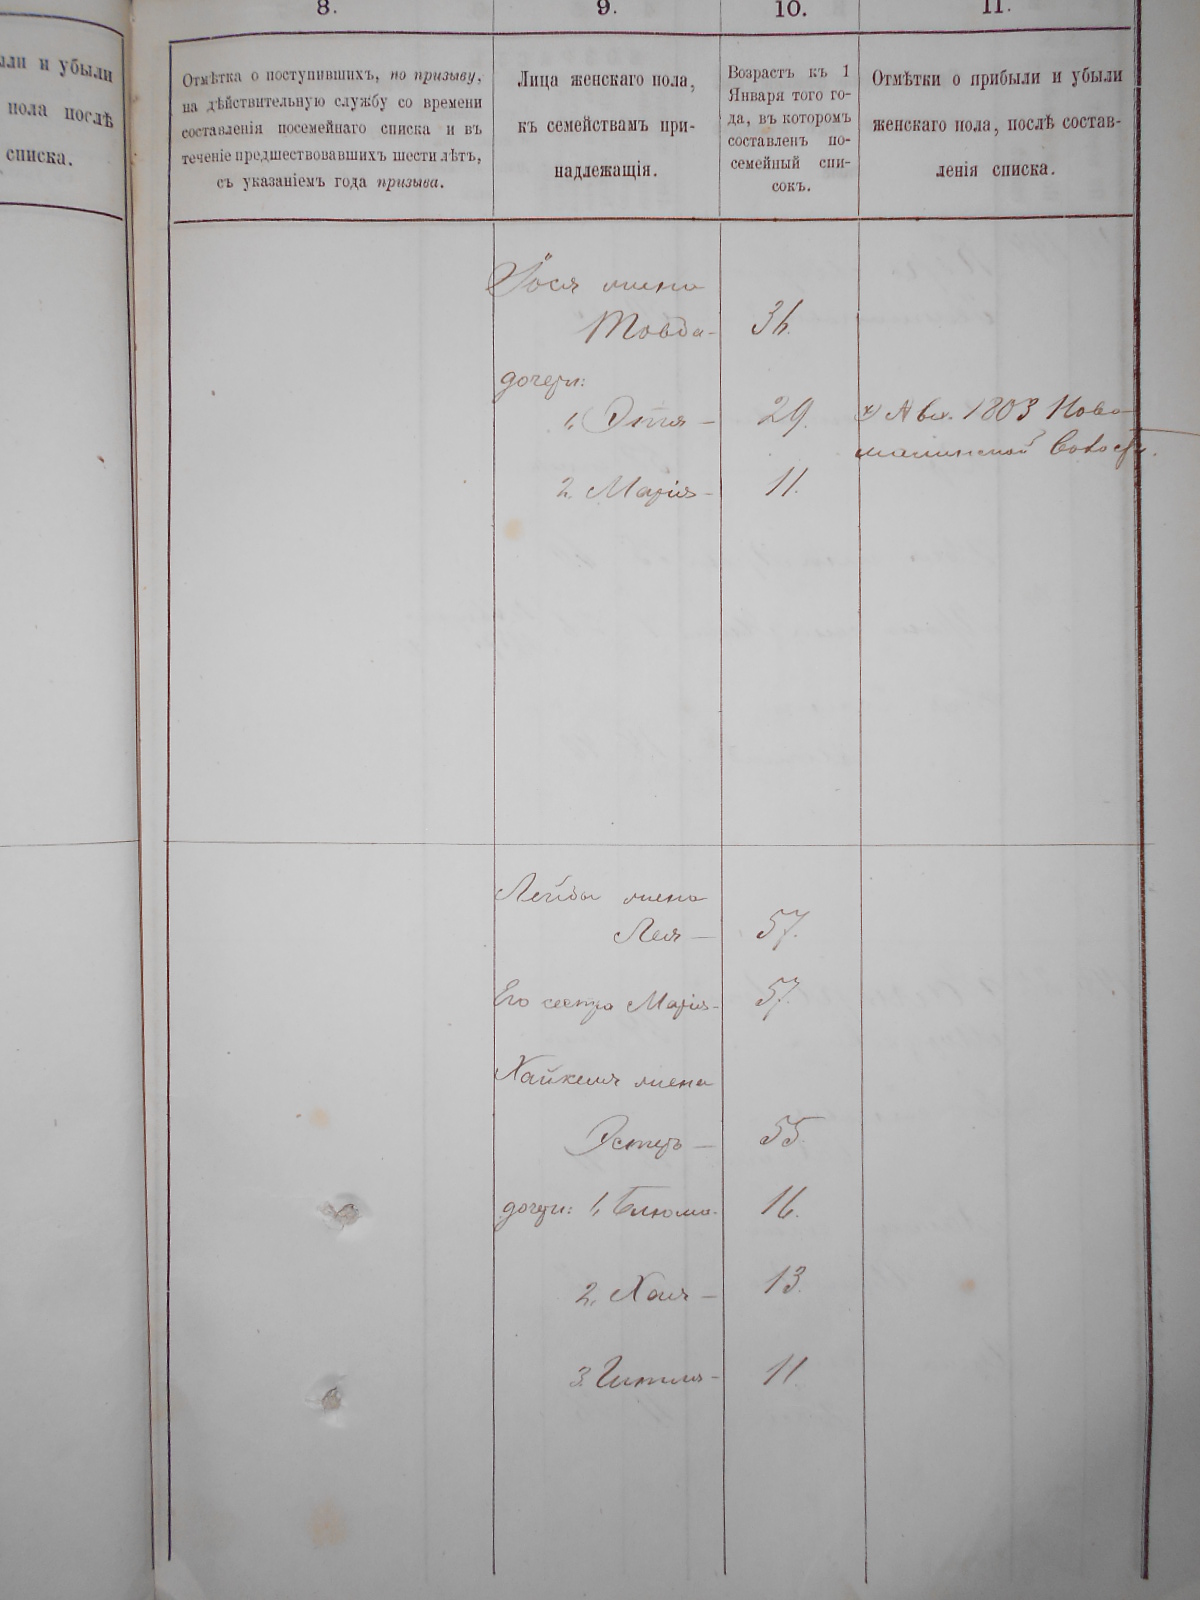 ыли и убыли
пола послѣ
списка.
8.
9.
10.
11.
Отмѣтка о поступившихъ, по призыву,
на дѣйствительную службу со времени
составленія посемейнаго списка и въ
теченіе предшествовавшихъ шести лѣтъ,
съ указаніемъ года призыва.
Лица женскаго пола,
къ семействамъ при-
надлежащія.
Возрастъ къ 1
Января того го-
да, въ которомъ
составленъ по-
семейный спи-
сокъ.
Отмѣтки о прибыли и убыли
женскаго пола, послѣ состав-
ленія списка.
жена
Товба - 36.
дочери:
1, Этля - 29.
1803 Ново-
волости.
2. Марія - 11.
Лейбы жена
Лея - 57.
Его сестра Марія - 57.
Хайкеля жена
Эстеръ - 55.
дочери: 1, Блюма. 16.
2, Хая - 13.
3. Гитля - 11.